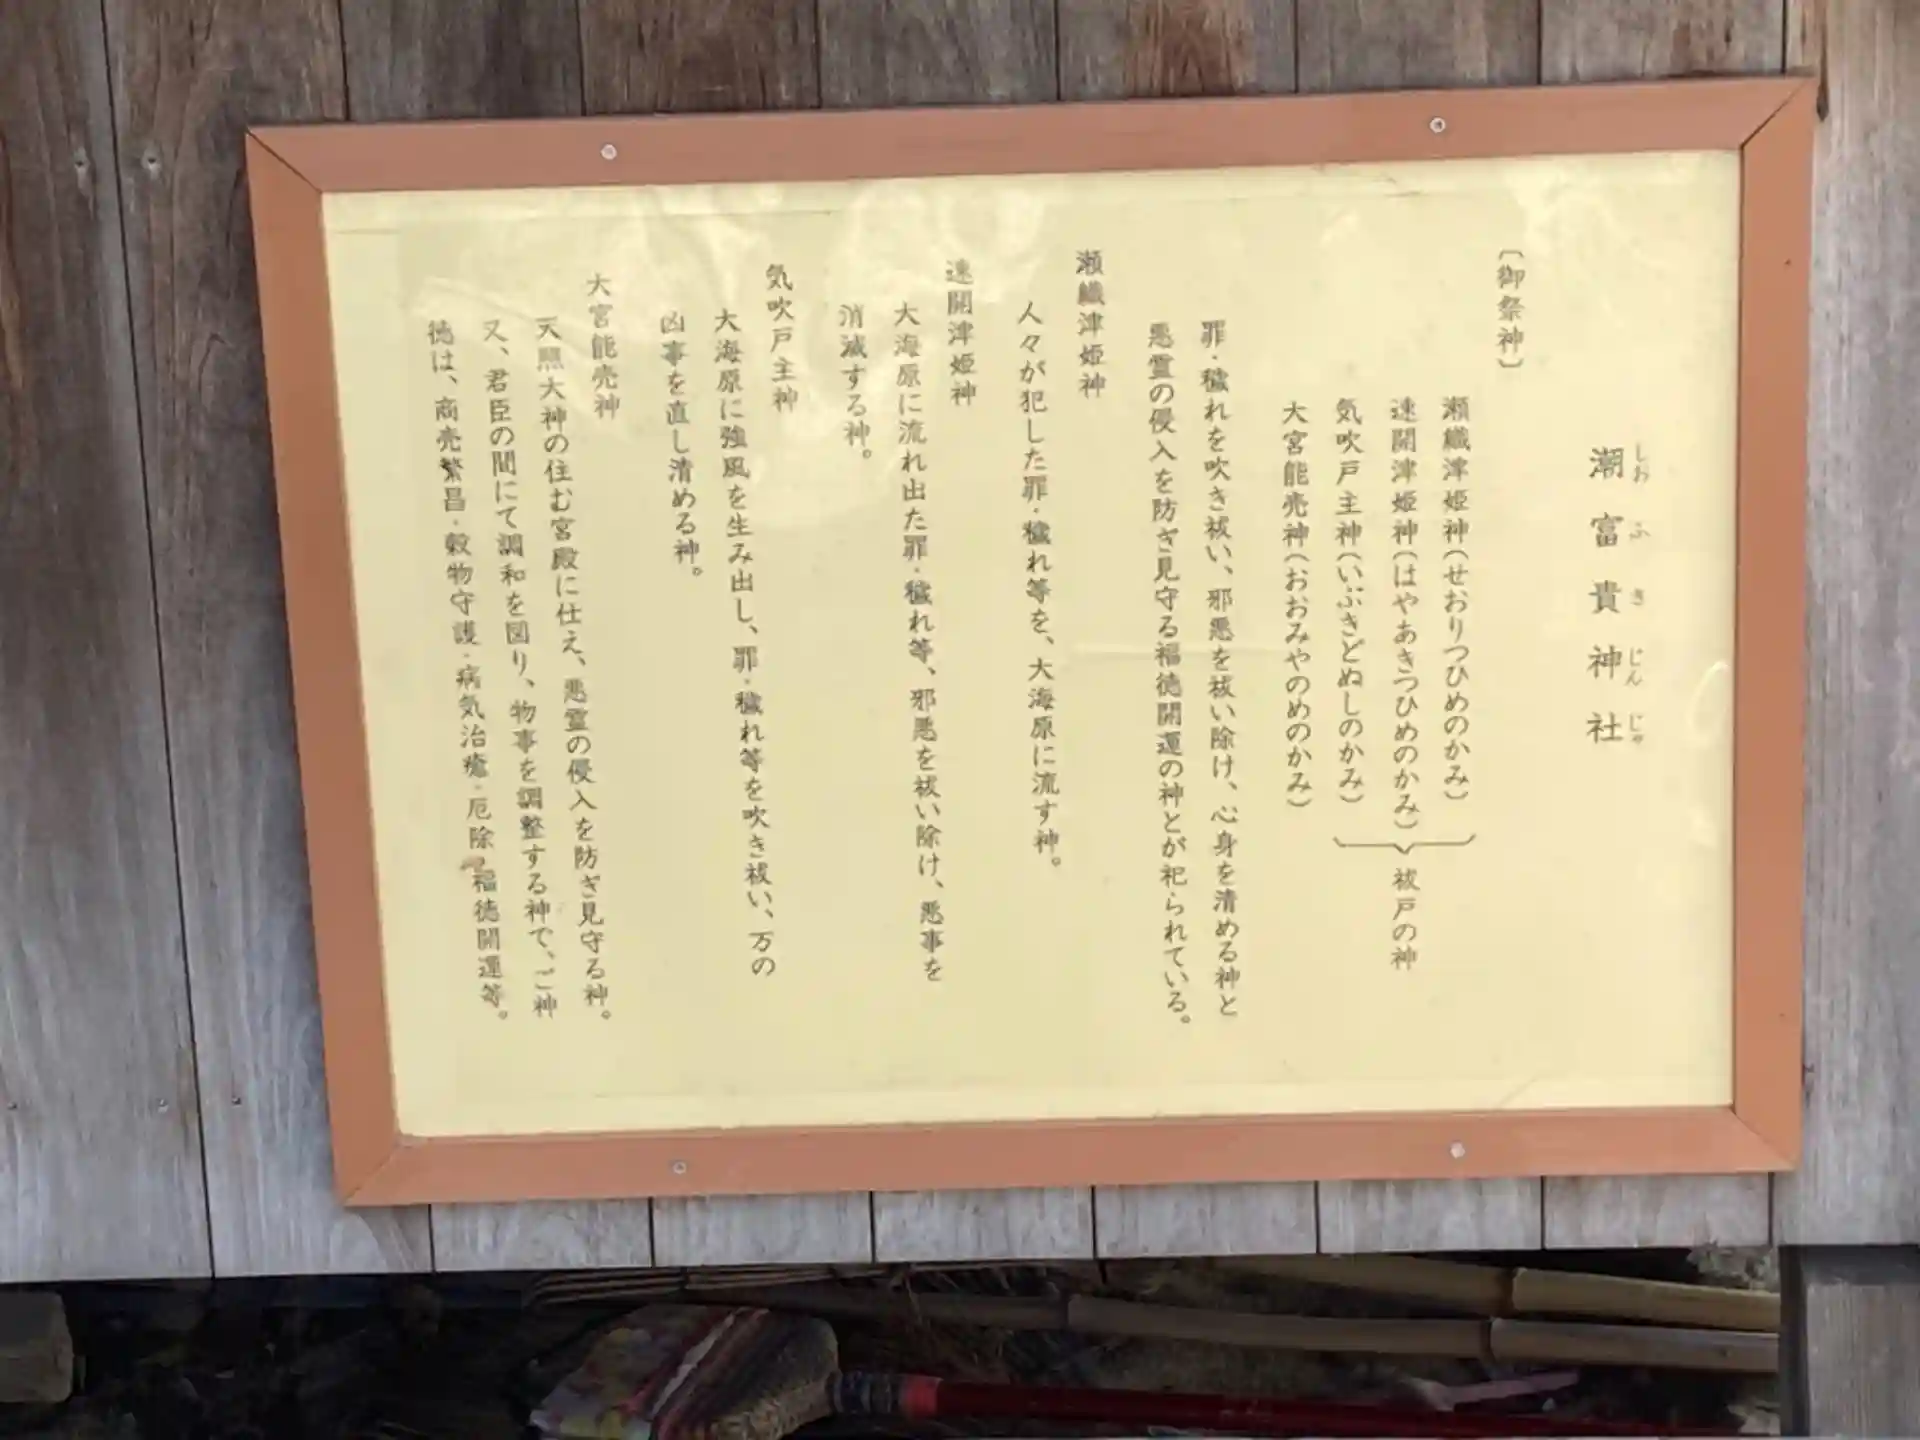 潮富貴神社
しおふきじんじゃ
〔御祭神〕
瀬織津姫神(せおりつひめのかみ)
速開津姫神(はやあきつひめのかみ)
気吹戸主神(いぶきどぬしのかみ)
祓戸の神
大宮能売神(おおみやのめのかみ)
罪・穢れを吹き祓い、邪悪を祓い除け、心身を清める神と
悪霊の侵入を防ぎ見守る福徳開運の神とが祀られている。
瀬織津姫神
人々が犯した罪・穢れ等を、大海原に流す神。
速開津姫神
大海原に流れ出た罪・穢れ等、邪悪を祓い除け、悪事を
消滅する神。
気吹戸主神
大海原に強風を生み出し、罪・穢れ等を吹き祓い、万の
凶事を直し清める神。
大宮能売神
天照大神の住む宮殿に仕え、悪霊の侵入を防ぎ見守る神。
又、君臣の間にて調和を図り、物事を調整する神で、ご神
徳は、商売繁昌・穀物守護・病気治癒・厄除・福徳開運等。